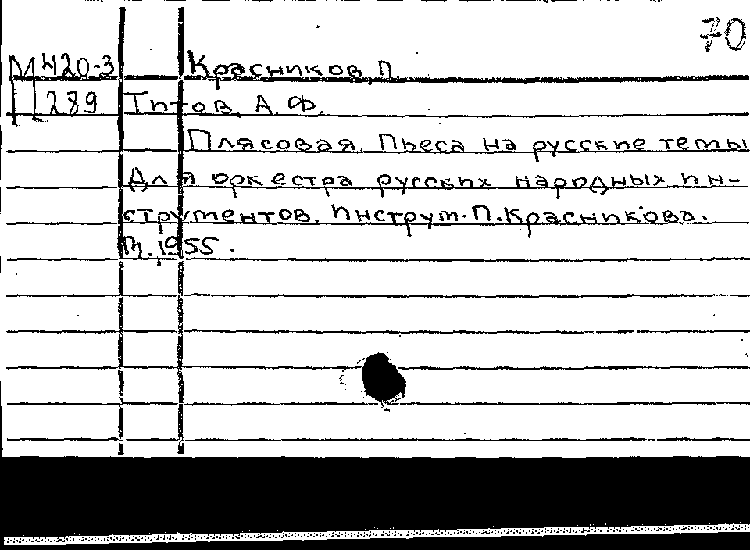 70
М 420-3 Красников, П.
289 Титов, А. Ф.
Плясовая. Пьеса на русские темы
для оркестра русских народных ин-
струментов. Инструм. П. Красникова.
М., 1955.